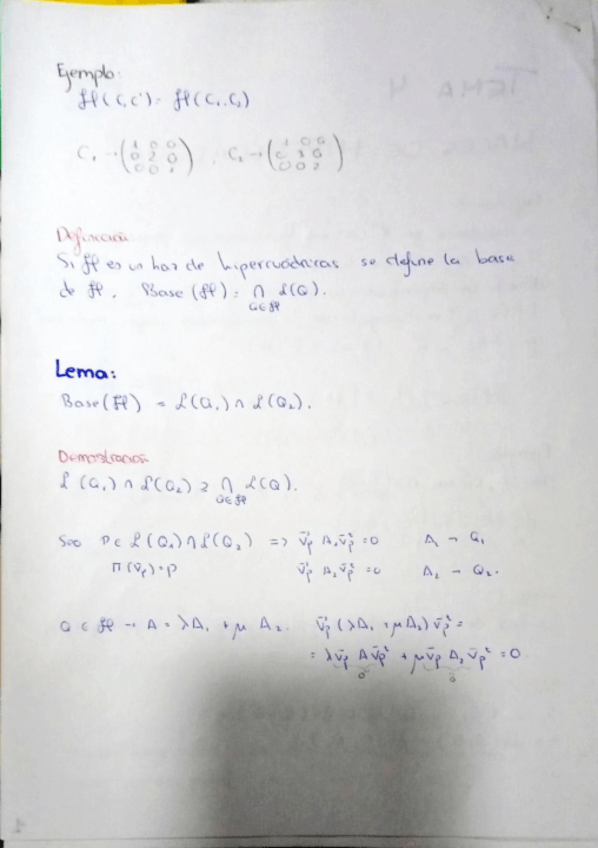 Ejemplo:
H(C, C') = H(C₁, C₂)
C₁ → (1 0 0 / 0 2 0 / 0 0 ), C₂ → (1 0 0 / 0 3 0 / 0 0 2)
Definición
Si H es un haz de hipercuádricas se define la base
de H, Base (H) = ∩ L(Q).
Q∈H
Lema:
Base(H) = L(Q₁) ∩ L(Q₂).
Demostración
L(Q₁) ∩ L(Q₂) ⊇ ∩ L(Q).
Q∈H
Sea P ∈ L(Q₁) ∩ L(Q₂) => v̄p A₁ v̄pᵗ = 0 A₁ → Q₁
Π(v̄p) = P v̄p A₂ v̄pᵗ = 0 A₂ → Q₂.
Q ∈ H → A = λA₁ + μ A₂. v̄p (λA₁ + μA₂) v̄pᵗ =
= λ v̄p A v̄pᵗ + μ v̄p A₂ v̄pᵗ = 0
0 0
TEMA 4